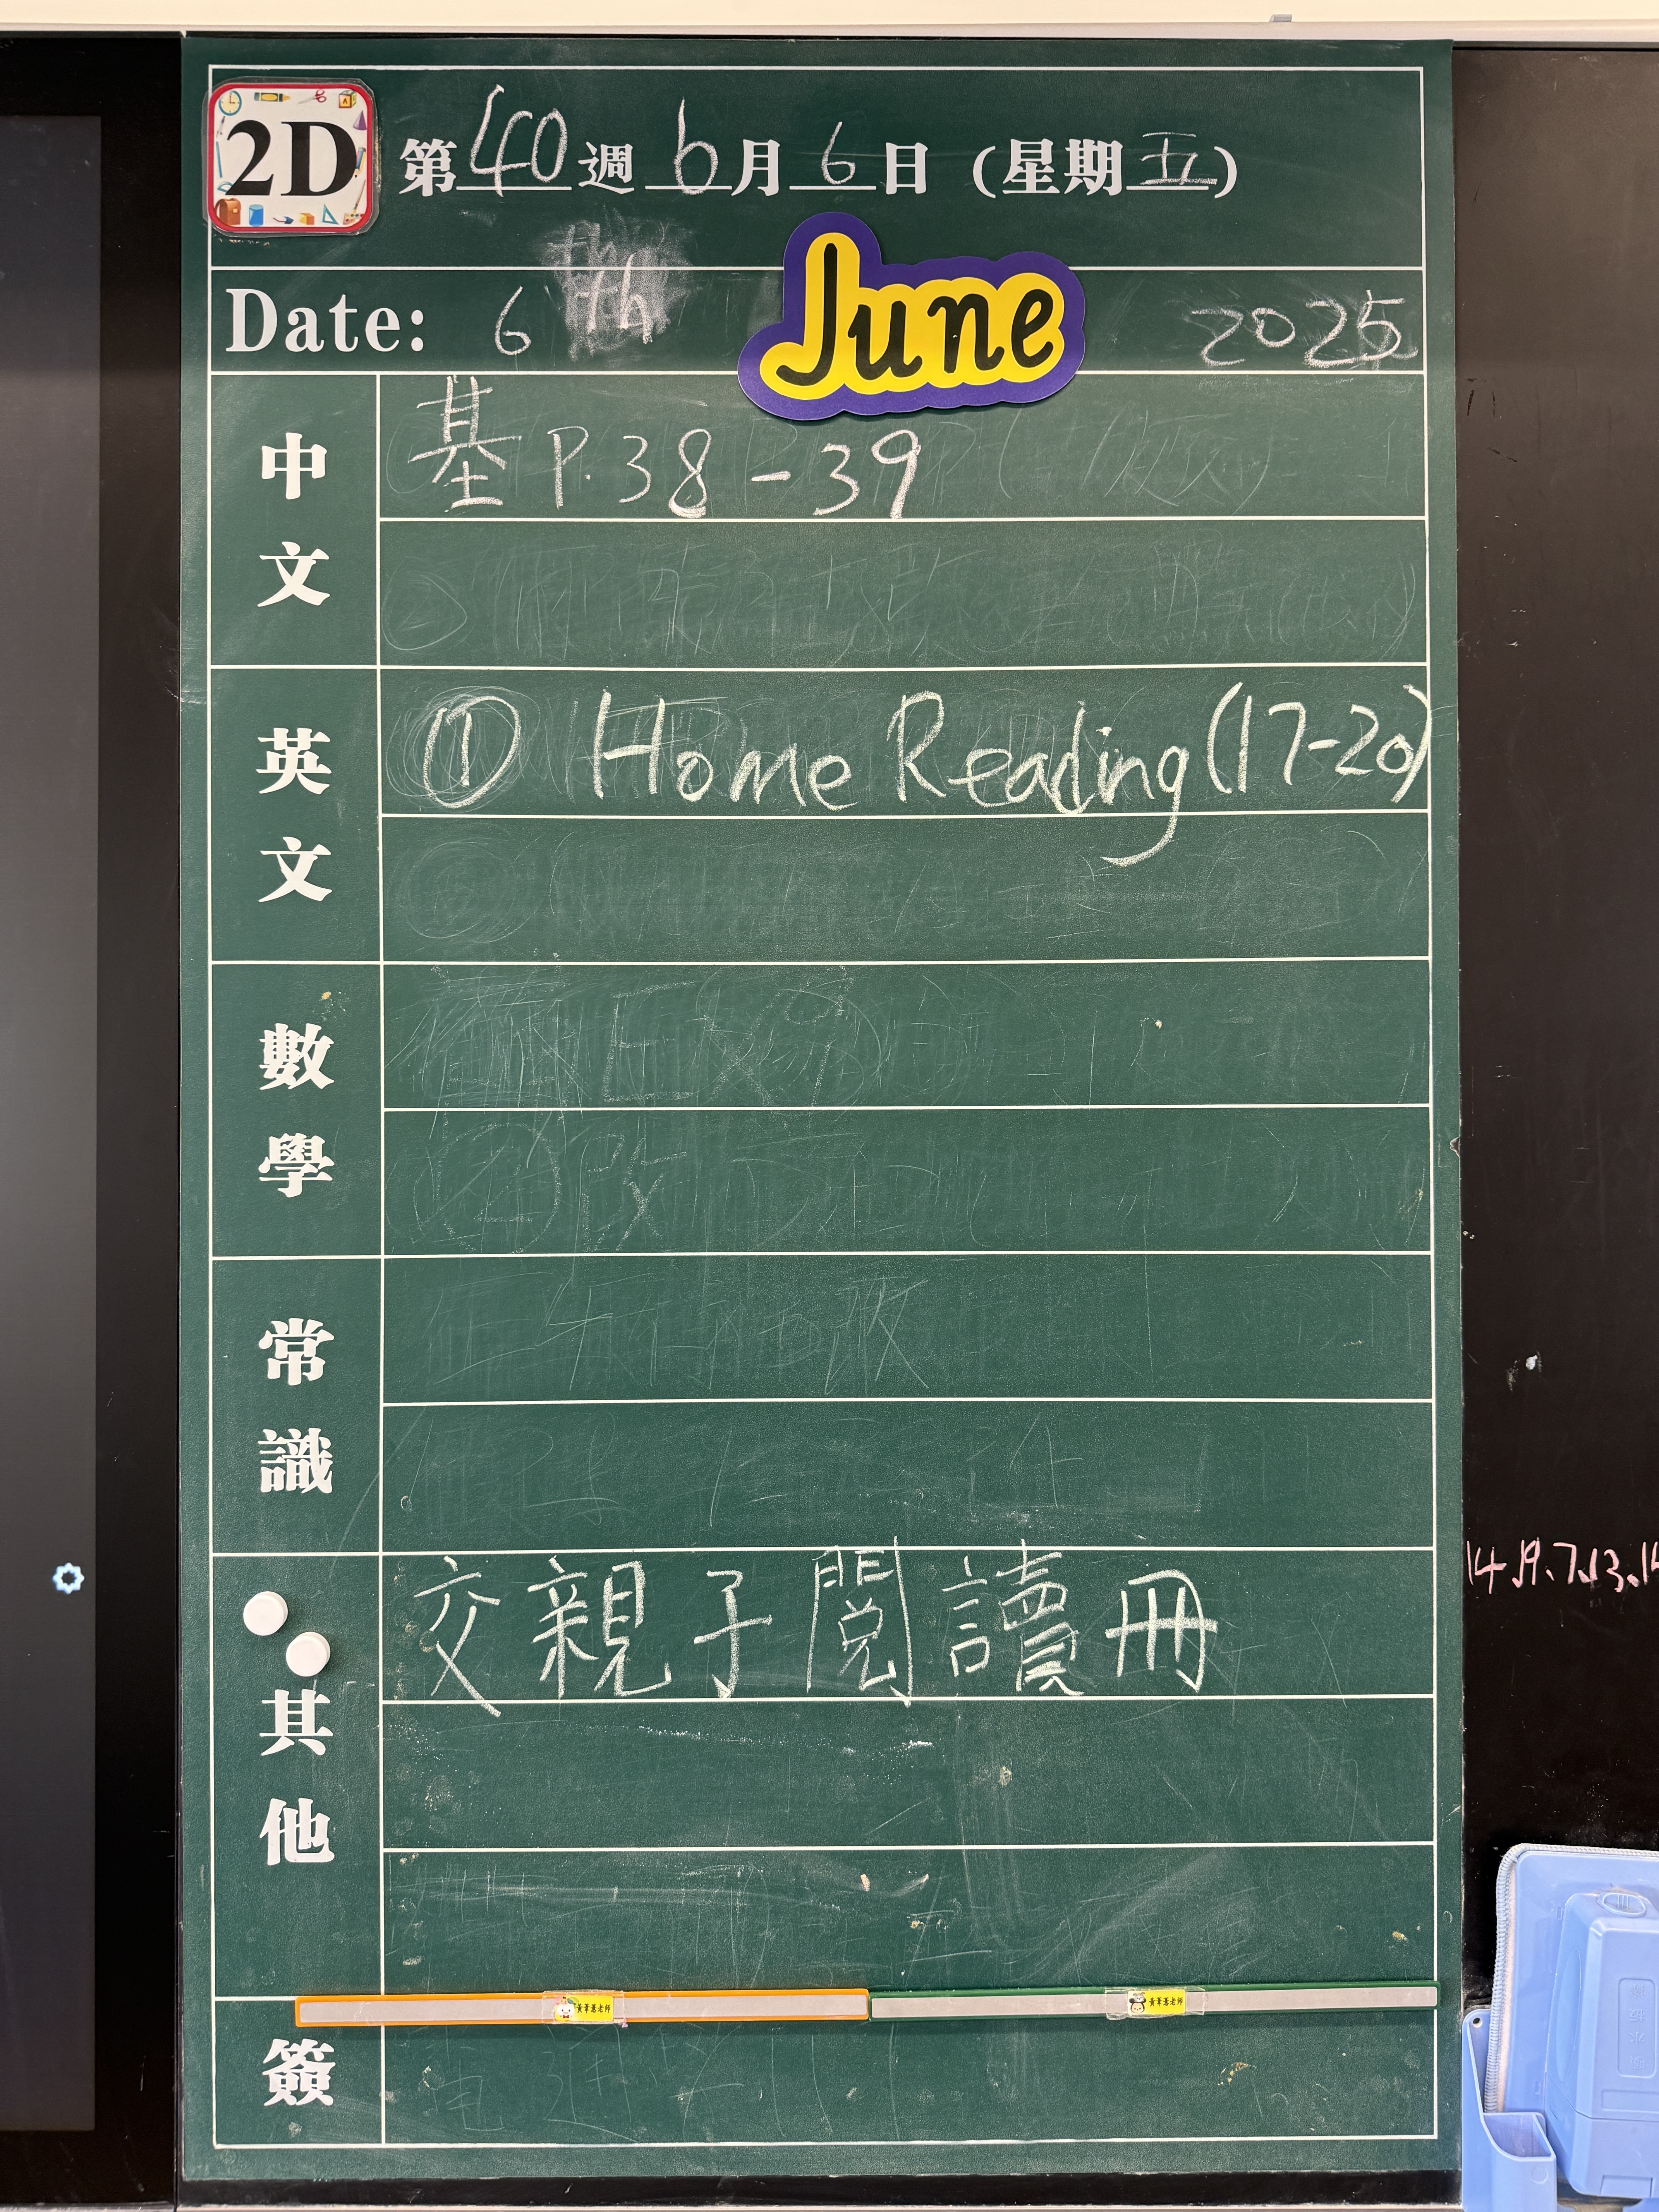 2D 第40週 6月6日 (星期五)
Date: 6 th June 2025
中文 基 P.38-39
英文 ① Home Reading (17-20)
數學
常識
其他 交親子閱讀冊
簽
14.19.7.13.14